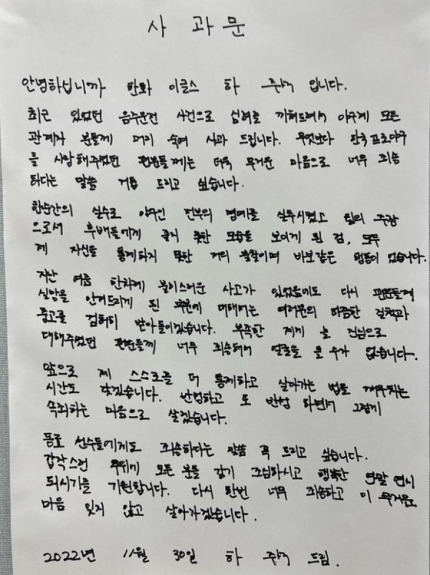 사 과 문
안녕하십니까 한화 이글스 하 주석 입니다.
최근 있었던 음주운전 사건으로 심려를 끼쳐드려서 야구계 모든
관계자 분들께 머리 숙여 사과 드립니다. 무엇보다 한국프로야구
를 사랑해주셨던 팬분들께는 더욱 무거운 마음으로 너무 죄송
하다는 말씀 거듭 드리고 싶습니다.
한순간의 실수로 야구인 전부의 명예를 실추시켰고 팀의 주장
으로서 후배들에게 좋지 못한 모습을 보이게 된 점, 모두
제 자신을 통제하지 못한 저의 불찰이며 바보같은 행동이었습니다.
지난 여름 한차례 불미스러운 사고가 있었음에도 다시 팬분들께
실망을 안겨드리게 된 부분에 대해서는 여러분의 따끔한 질책과
충고를 겸허히 받아들이겠습니다. 부족한 제게 늘 진심으로
대해주셨던 팬분들께 너무 죄송해서 얼굴을 들 수가 없습니다.
앞으로 제 스스로를 더 통제하고 살아가는 법을 깨우치는
시간도 갖겠습니다. 반성하고 또 반성 하면서 그렇게
속죄하는 마음으로 살겠습니다.
동료 선수들에게도 죄송하다는 말씀 꼭 드리고 싶습니다.
갑작스런 추위에 모든 분들 감기 조심하시고 행복한 연말 연시
되시기를 기원합니다. 다시 한번 너무 죄송하고 이 무거운
마음 잊지 않고 살아가겠습니다.
2022년 11월 30일 하 주석 드림.